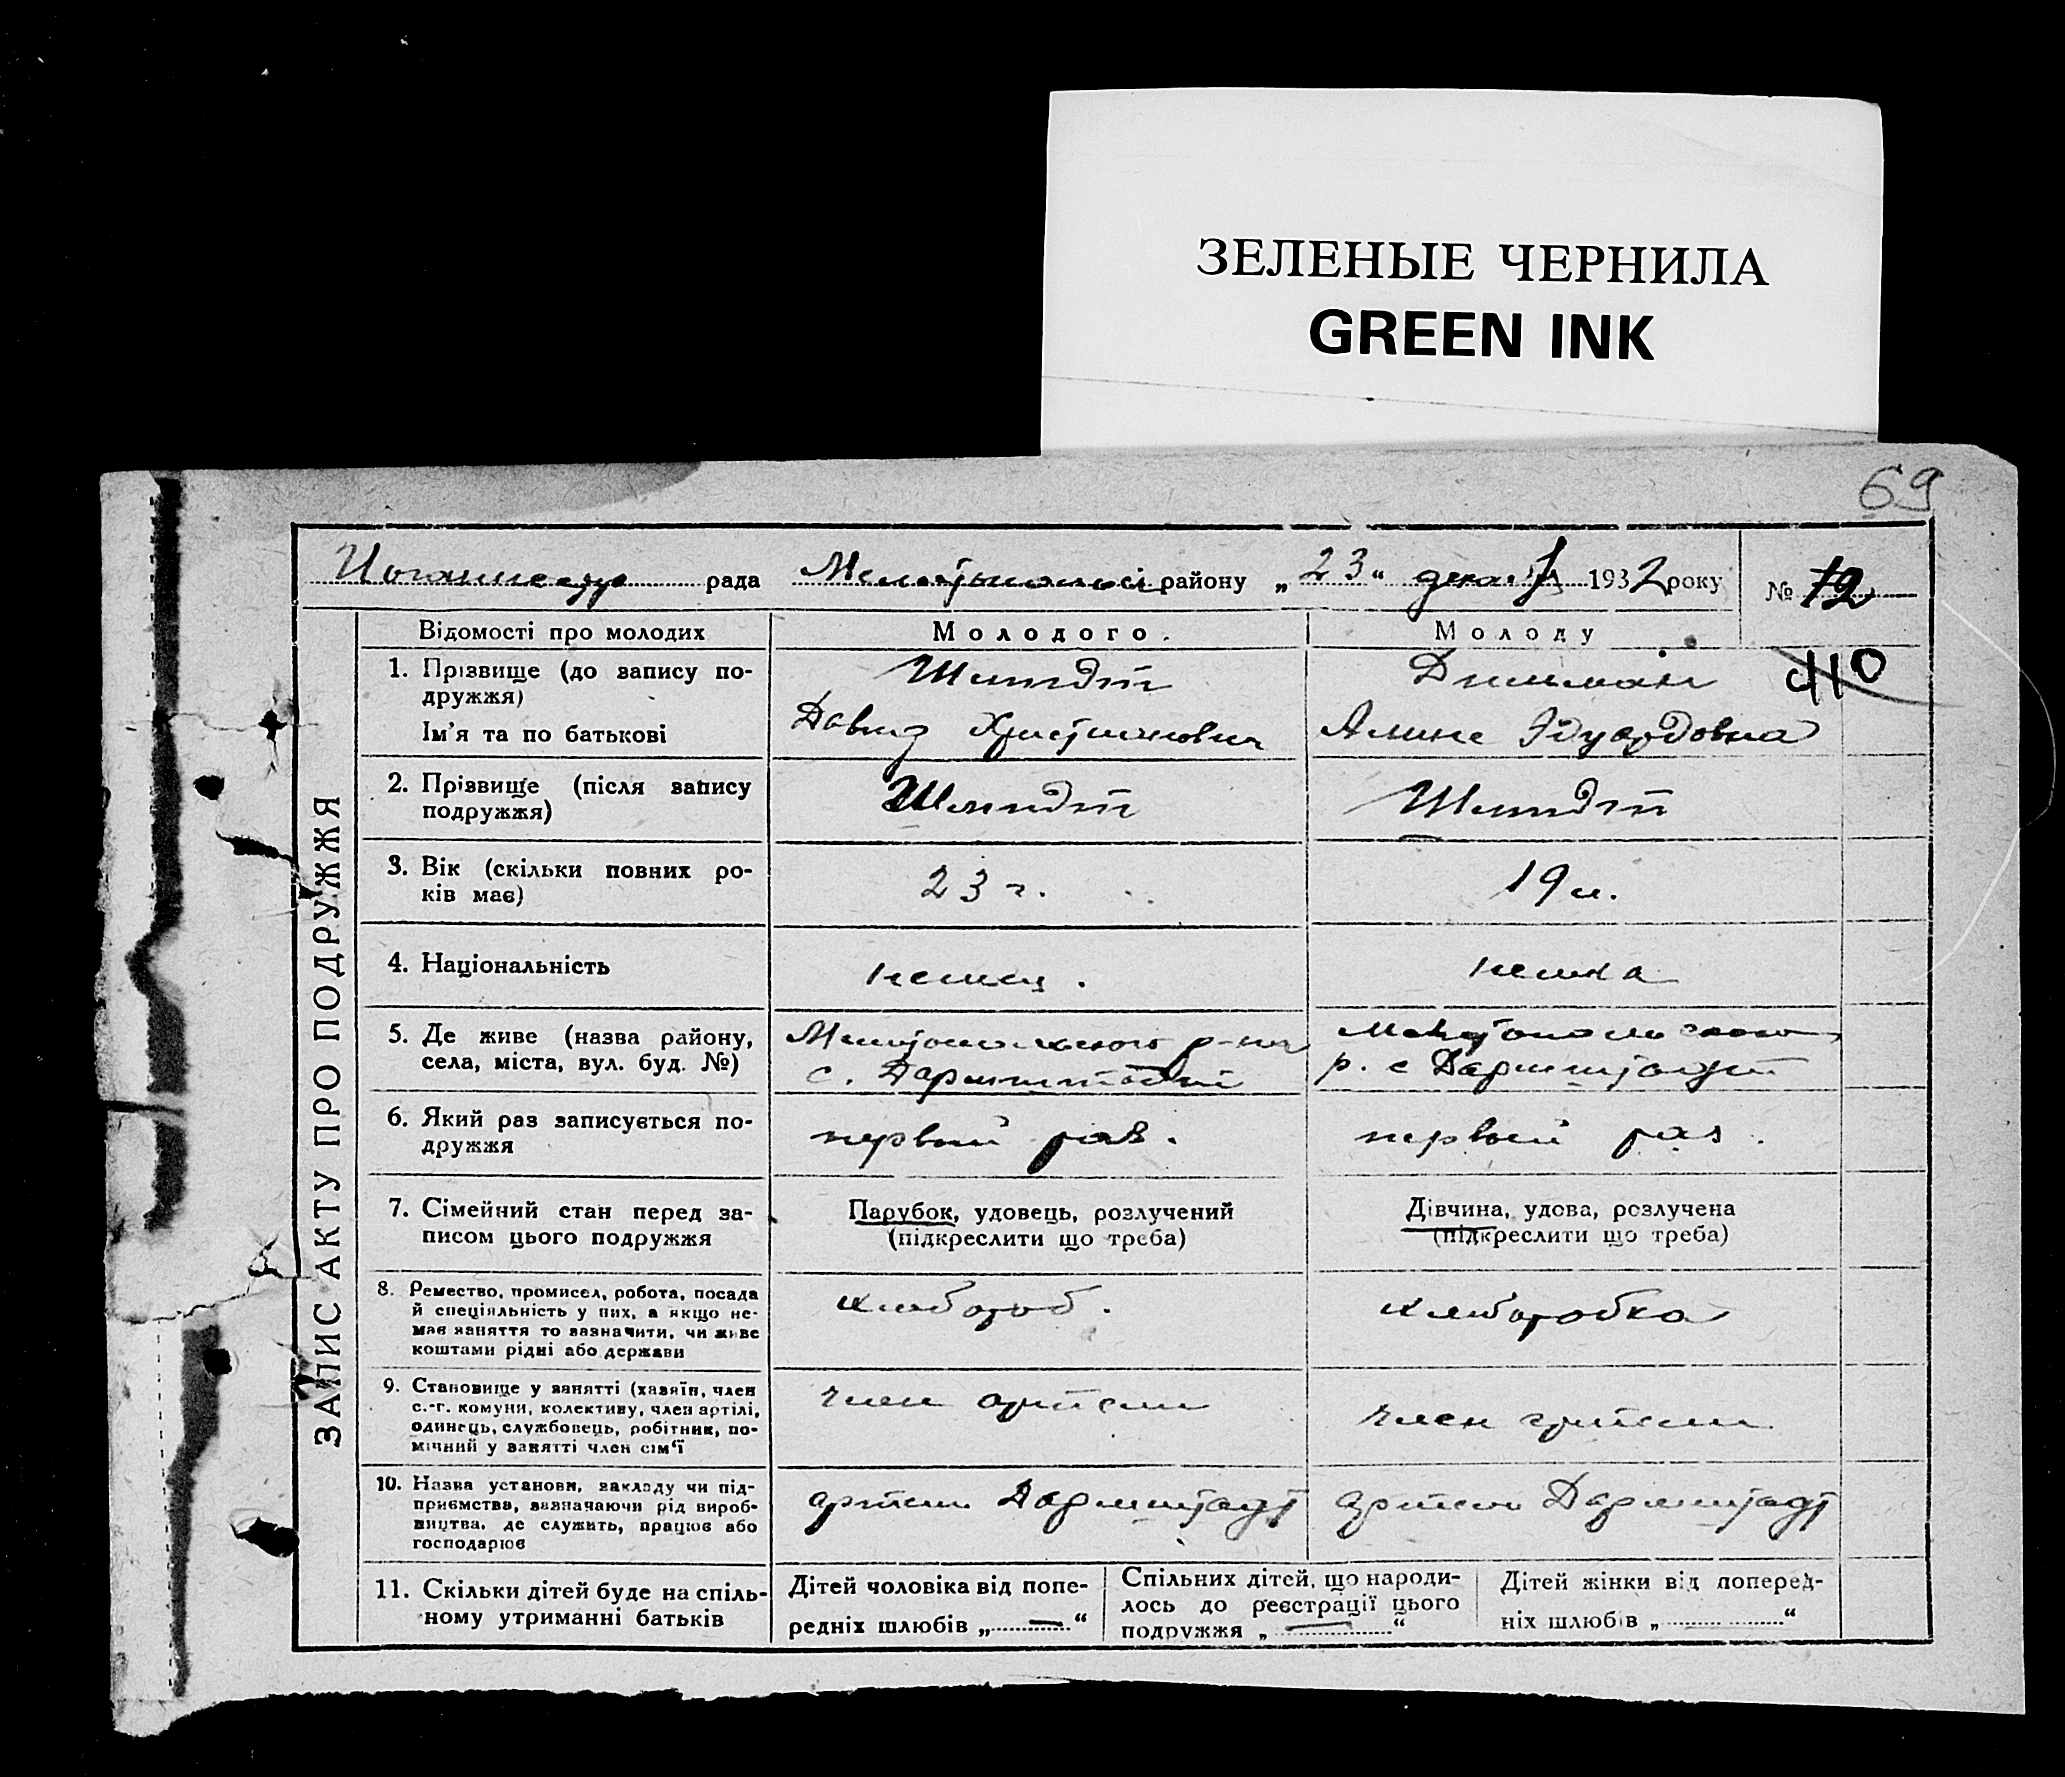 ЗЕЛЕНЫЕ ЧЕРНИЛА
GREEN INK
69
рада району „ 23 “ 1932 року № 12
ЗАПИС АКТУ ПРО ПОДРУЖЖЯ
Відомості про молодих
Молодого.
Молоду
110
1. Прізвище (до запису по-
дружжя)
Ім'я та по батькові
Шмидт
Давид Христианович
Дильман
Алине Эдуардовна
2. Прізвище (після запису
подружжя)
Шмидт
Шмидт
3. Вік (скільки повних ро-
ків має)
23 г.
19 л.
4. Національність
немец.
немка
5. Де живе (назва району,
села, міста, вул. буд. №)
Мелитопольского р-на
с. Дармштадт
Мелитопольского
р. с Дармштадт
6. Який раз записується по-
дружжя
первый раз.
первый раз.
7. Сімейний стан перед за-
писом цього подружжя
Парубок, удовець, розлучений
(підкреслити що треба)
Дівчина, удова, розлучена
(підкреслити що треба)
8. Ремество, промисел, робота, посада
й спеціяльність у них, а якщо не-
має заняття то зазначити, чи живе
коштами рідні або держави
хлебороб.
хлеборобка
9. Становище у занятті (хазяїн, член
с.-г. комуни, колективу, член артілі,
одинець, службовець, робітник, по-
мічний у занятті член сім'ї
член артели
член артели
10. Назва установи, закладу чи під-
приємства, зазначаючи рід вироб-
ництва, де служить, працює або
господарює
артели Дармштадт
артели Дармштадт
11. Скільки дітей буде на спіль-
ному утриманні батьків
Дітей чоловіка від попе-
редніх шлюбів „ — “
Спільних дітей, що народи-
лось до реєстрації цього
подружжя „ — “
Дітей жінки від поперед-
ніх шлюбів „ “